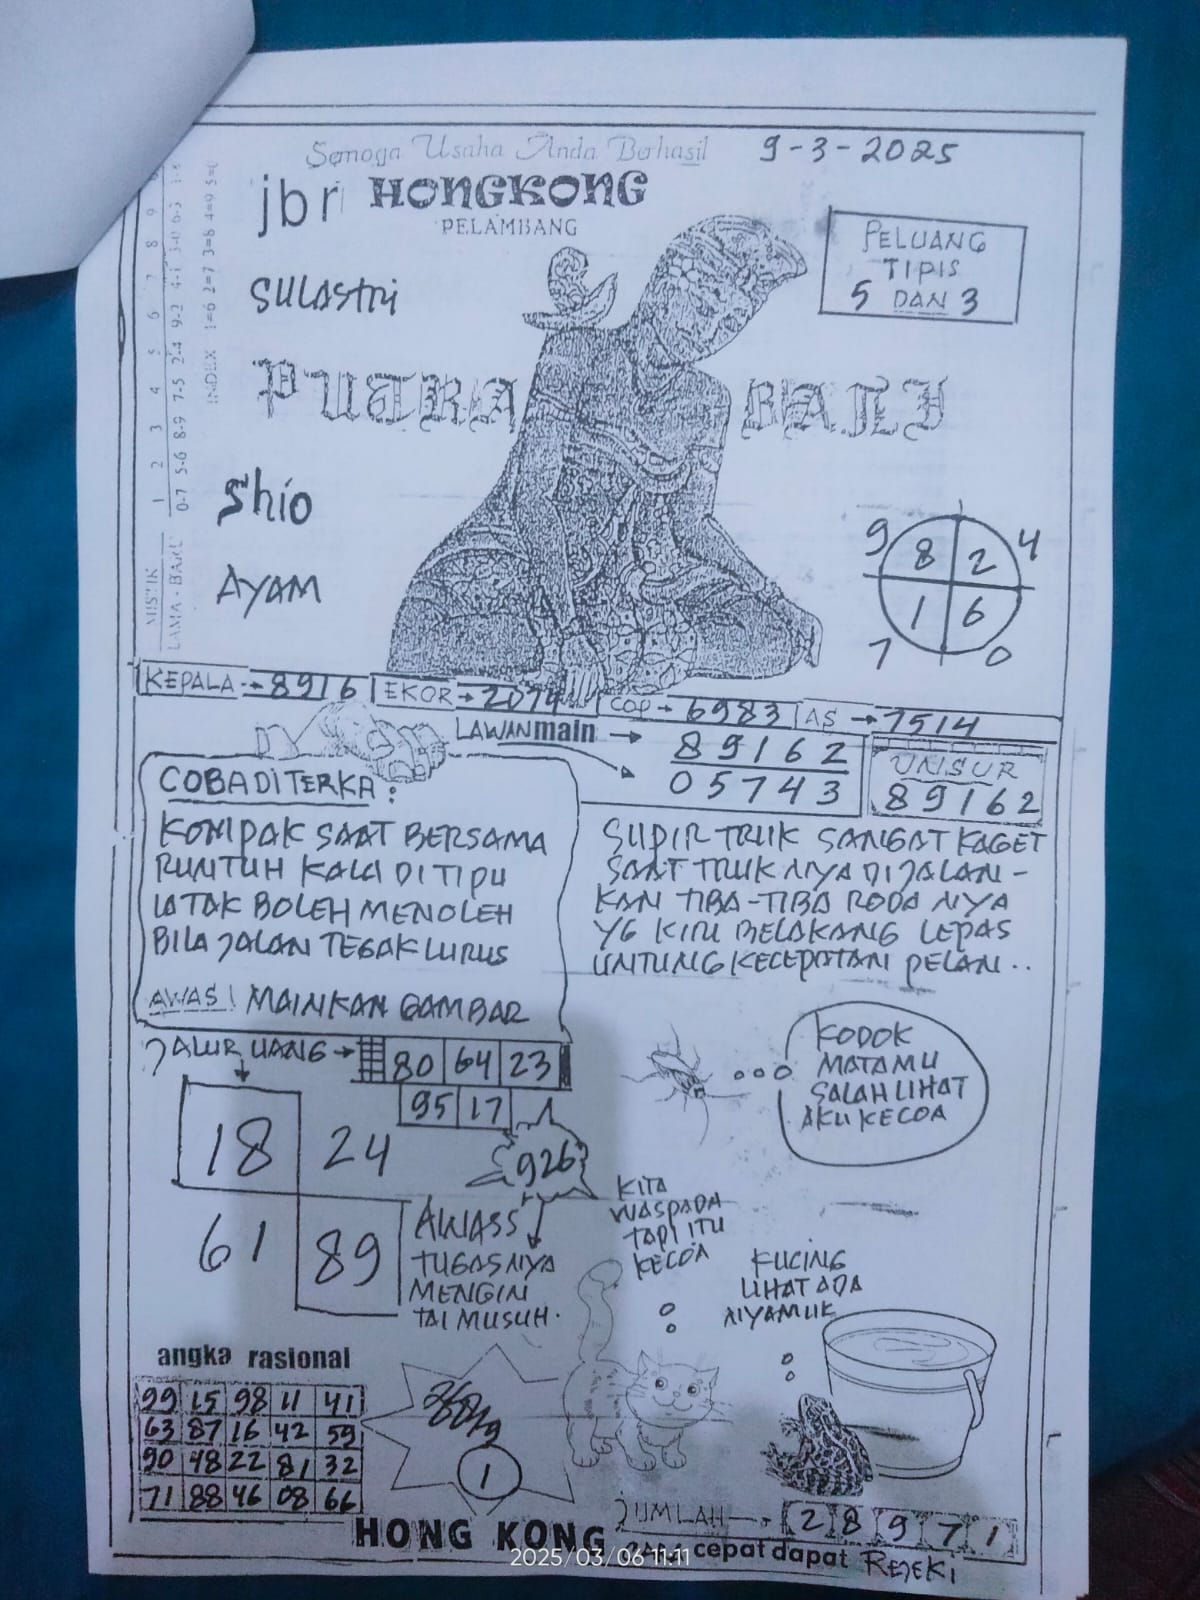 Semoga Usaha Anda Berhasil
9-3-2025
jbr HONGKONG
PELAMBANG
SULASTRI
PELUANG
TIPIS
5 DAN 3
PUTRA BALI
Shio
AYAM
MISTIK 1 2 3 4 5 6 7 8 9
LAMA - BARU 0-7 5-6 8-9 7-5 2-4 9-2 4-1 3-0 6-3 1-8
INDEX 1=6 2=7 3=8 4=9 5=0
9 8 2 4
7 1 6 0
KEPALA → 8916 EKOR → 2074 COP → 6983 AS → 7514
LAWAN main → 89162
05743
UNSUR
89162
COBA DITERKA :
KOMPAK SAAT BERSAMA
RUNTUH KALA DITIPU
LATAK BOLEH MENOLEH
BILA JALAN TEGAK LURUS
AWAS! MAINKAN GAMBAR
SUPIR TRUK SANGAT KAGET
SAAT TRUK NYA DIJALAN -
KAN TIBA-TIBA RODA NYA
YG KIRI BELAKANG LEPAS
UNTUNG KECEPATAN PELAN..
JALUR UANG → 80 64 23
95 17
18 24
61 89
926
AWASS
TUGASNYA
MENGIN
TAI MUSUH.
KODOK
MATAMU
SALAH LIHAT
AKU KECOA
KITA
WASPADA
TAPI ITU
KECOA
KUCING
LIHAT ADA
NYAMUK
angka rasional
99 15 98 11 41
63 87 16 42 59
90 48 22 81 32
71 88 46 08 66
1
JUMLAH → 2 8 9 7 1
HONG KONG
cepat dapat REJEKI
2025/03/06 11:11